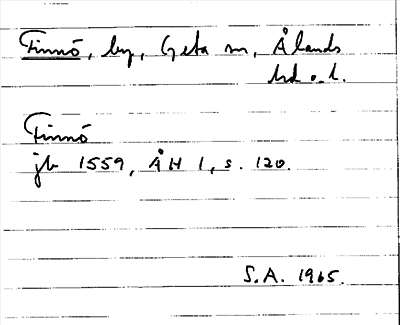 Finnö, by, Geta sn, Ålands
hd o. l.
Finnö
jb 1559, ÅH 1, s. 120.
S.A. 1965.